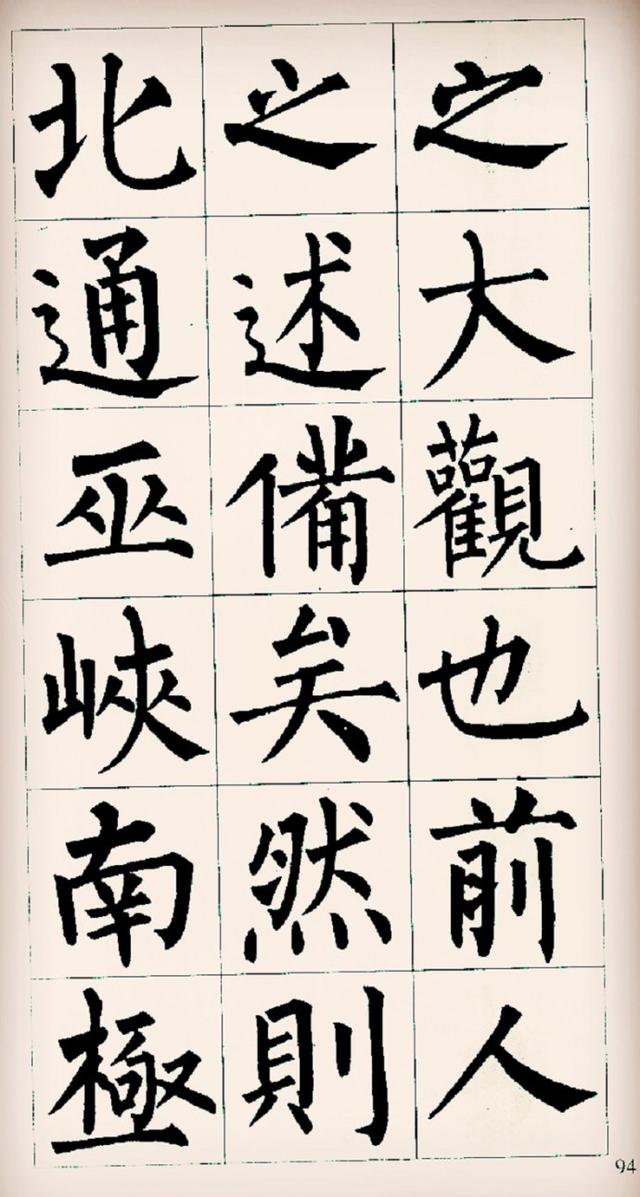 之大觀也前人
之述備矣然則
北通巫峽南極
94